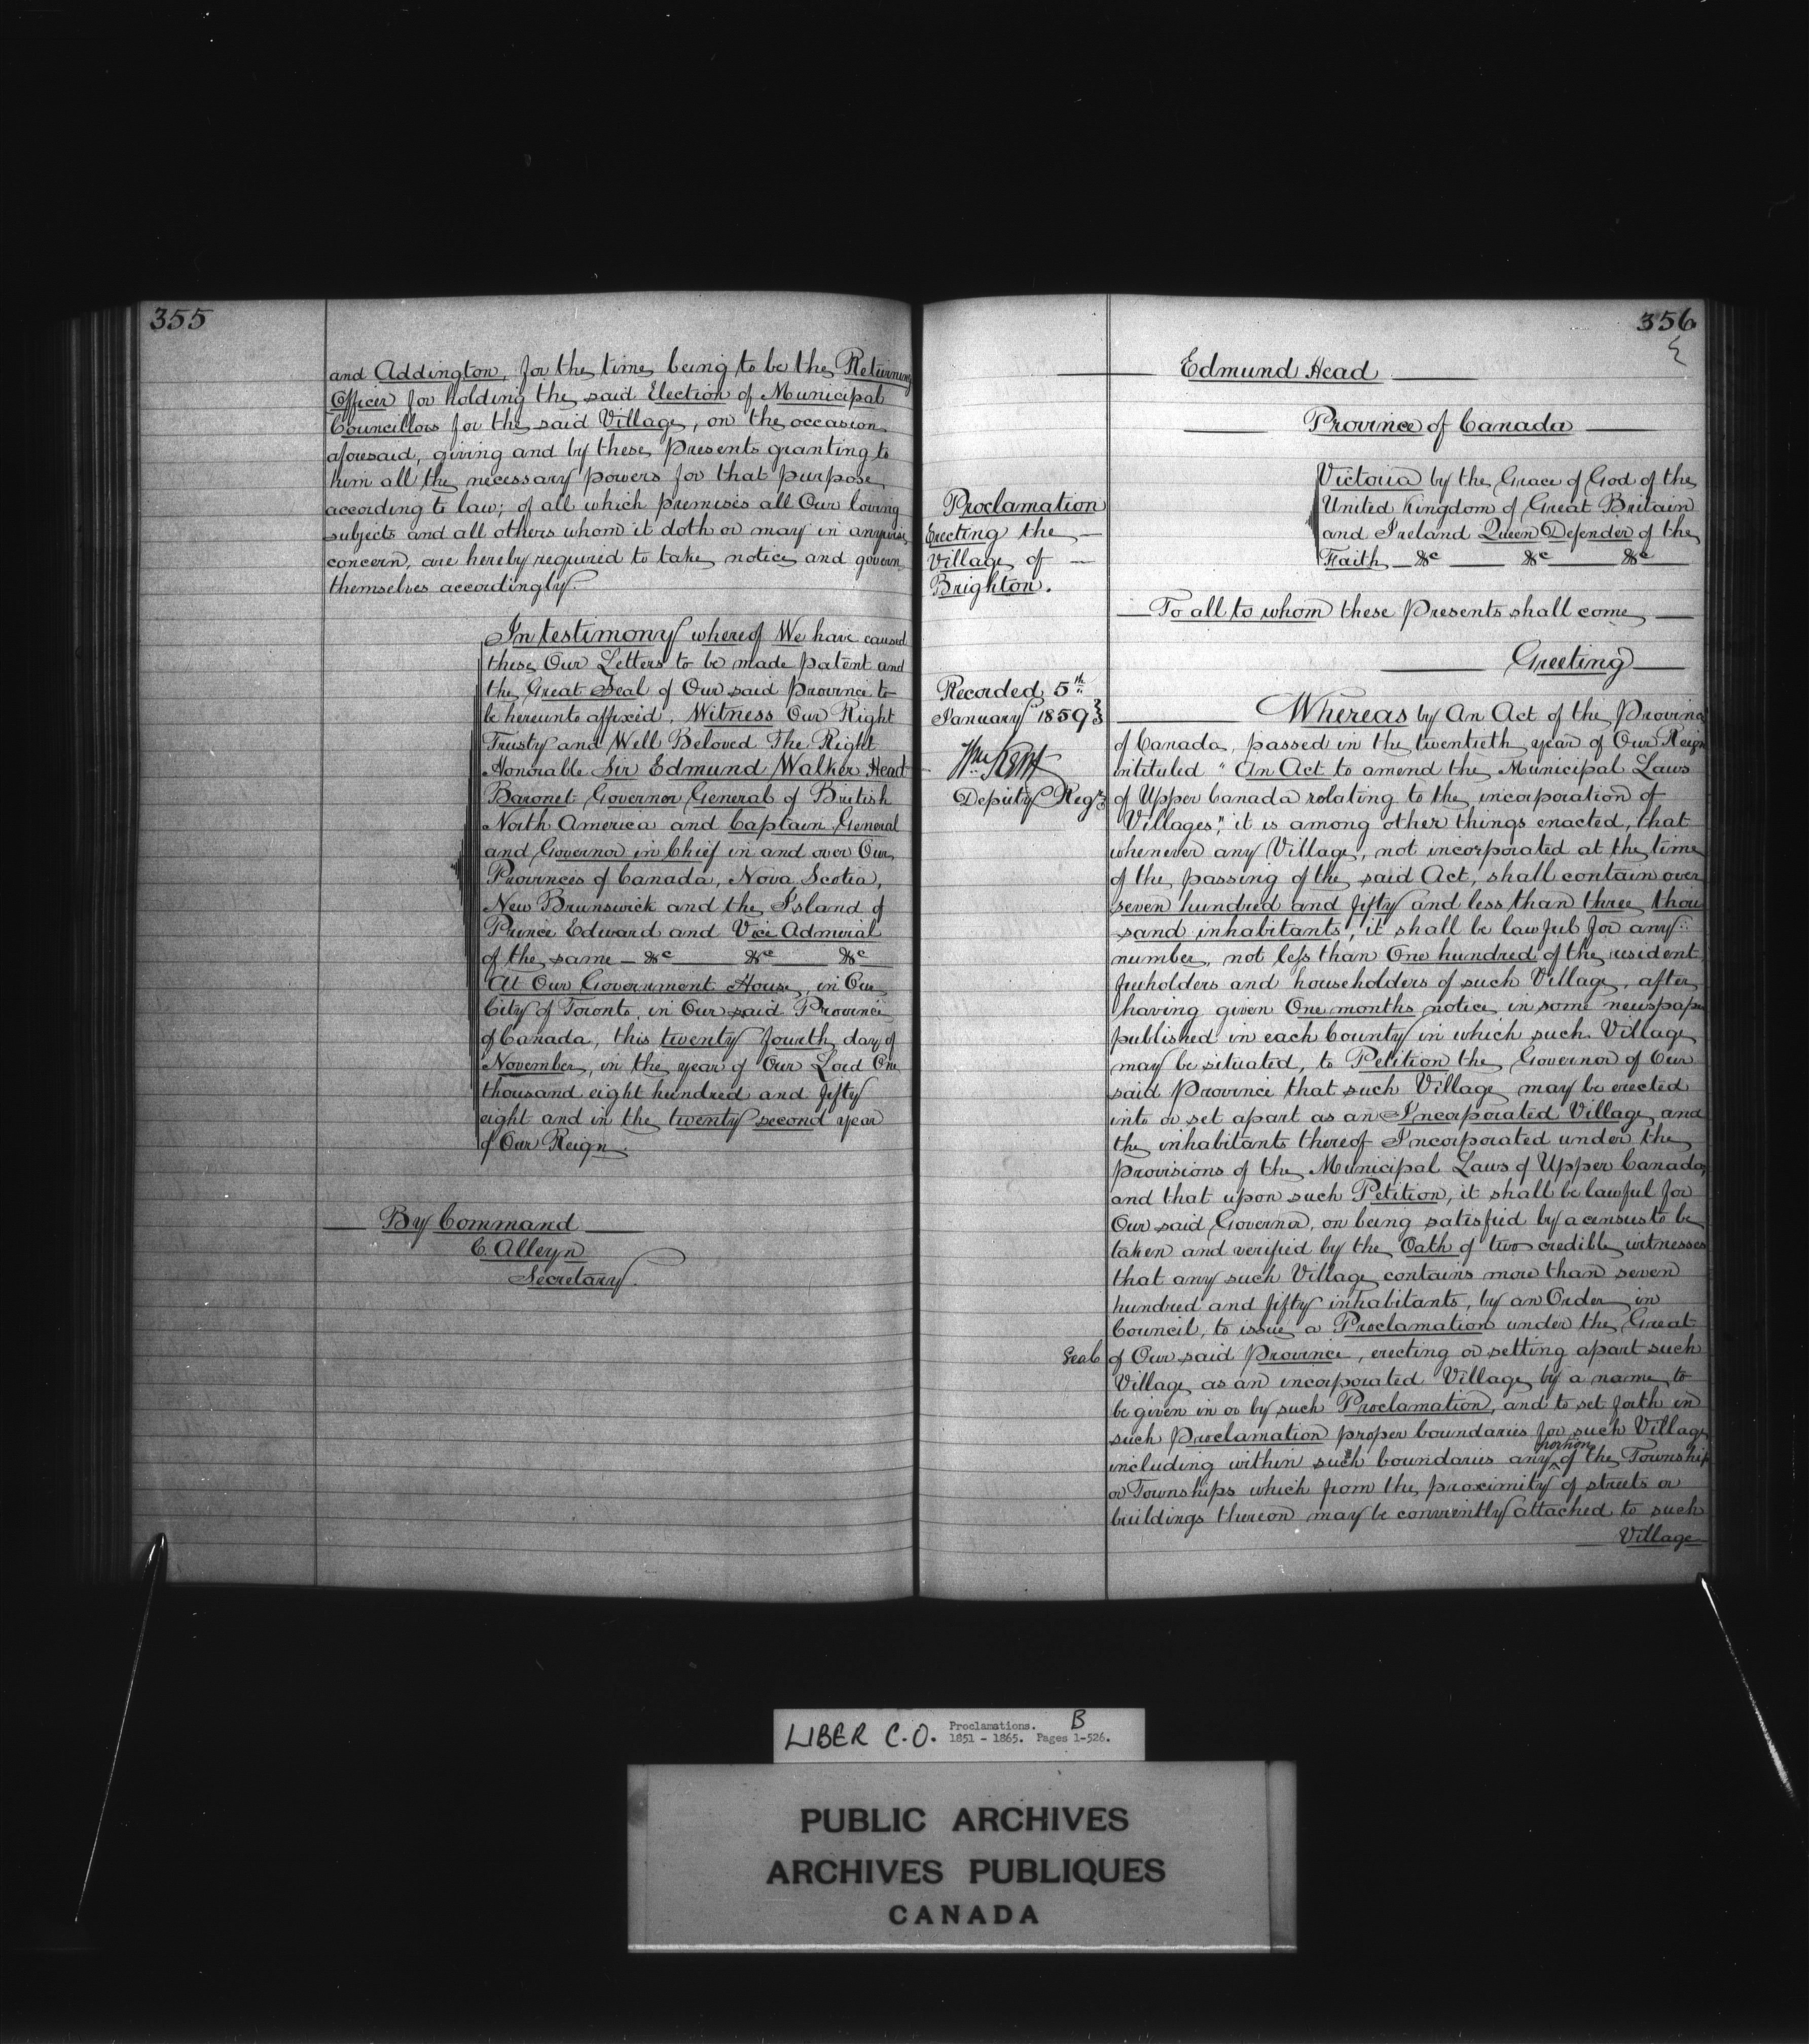 355
and Addington, for the time being to be the Returning
Officer for holding the said Election of Municipal
Councillors for the said Village, on the occasion
aforesaid, giving and by these Presents granting to
him all the necessary powers for that purpose
according to law; of all which premises all Our loving
subjects and all others whom it doth or may in anywise
concern, are hereby required to take notice and govern
themselves accordingly.
In testimony whereof We have caused
these Our Letters to be made patent and
the Great Seal of Our said Province to
be hereunto affixed. Witness Our Right
Trusty and Well Beloved The Right
Honorable Sir Edmund Walker Head
Baronet Governor General of British
North America and Captain General
and Governor in Chief in and over Our
Provinces of Canada, Nova Scotia,
New Brunswick and the Island of
Prince Edward and Vice Admiral
of the same — &c — &c — &c
At Our Government House, in Our
City of Toronto, in Our said Province
of Canada, this twenty fourth day of
November, in the year of Our Lord One
thousand eight hundred and fifty
eight and in the twenty second year
of Our Reign.
By Command
C. Alleyn
Secretary.
356
Edmund Head
Province of Canada
Victoria by the Grace of God of the
United Kingdom of Great Britain
and Ireland Queen Defender of the
Faith — &c — &c — &c
To all to whom these Presents shall come
Greeting
Proclamation
Erecting the
Village of
Brighton.
Recorded 5th
January 1859
Wm Kent
Deputy Regr
Whereas by An Act of the Province
of Canada, passed in the twentieth year of Our Reign
intituled "An Act to amend the Municipal Laws
of Upper Canada relating to the incorporation of
Villages", it is among other things enacted, that
whenever any Village, not incorporated at the time
of the passing of the said Act, shall contain over
seven hundred and fifty and less than three thou
sand inhabitants, it shall be lawful for any
number, not less than One hundred of the resident
freeholders and householders of such Village, after
having given One months notice in some newspaper
published in each County in which such Village
may be situated, to Petition the Governor of Our
said Province that such Village may be erected
into or set apart as an Incorporated Village and
the inhabitants thereof Incorporated under the
provisions of the Municipal Laws of Upper Canada,
and that upon such Petition, it shall be lawful for
Our said Governor, on being satisfied by a census to be
taken and verified by the Oath of two credible witnesses
that any such Village contains more than seven
hundred and fifty inhabitants, by an Order in
Council, to issue a Proclamation under the Great
Seal of Our said Province, erecting or setting apart such
Village as an incorporated Village by a name to
be given in or by such Proclamation, and to set forth in
such Proclamation proper boundaries for such Village
including within such boundaries any portion of the Township
or Townships which from the proximity of streets or
buildings thereon may be conveniently attached to such
Village
LIBER C.O. Proclamations. B
1851 - 1865. Pages 1-526.
PUBLIC ARCHIVES
ARCHIVES PUBLIQUES
CANADA